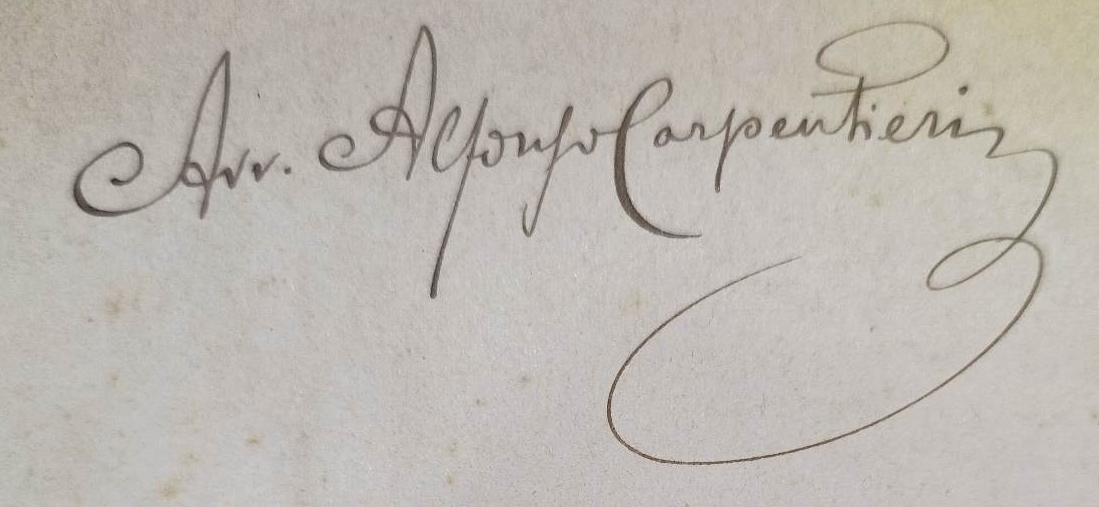 Avv. Alfonso Carpentieri